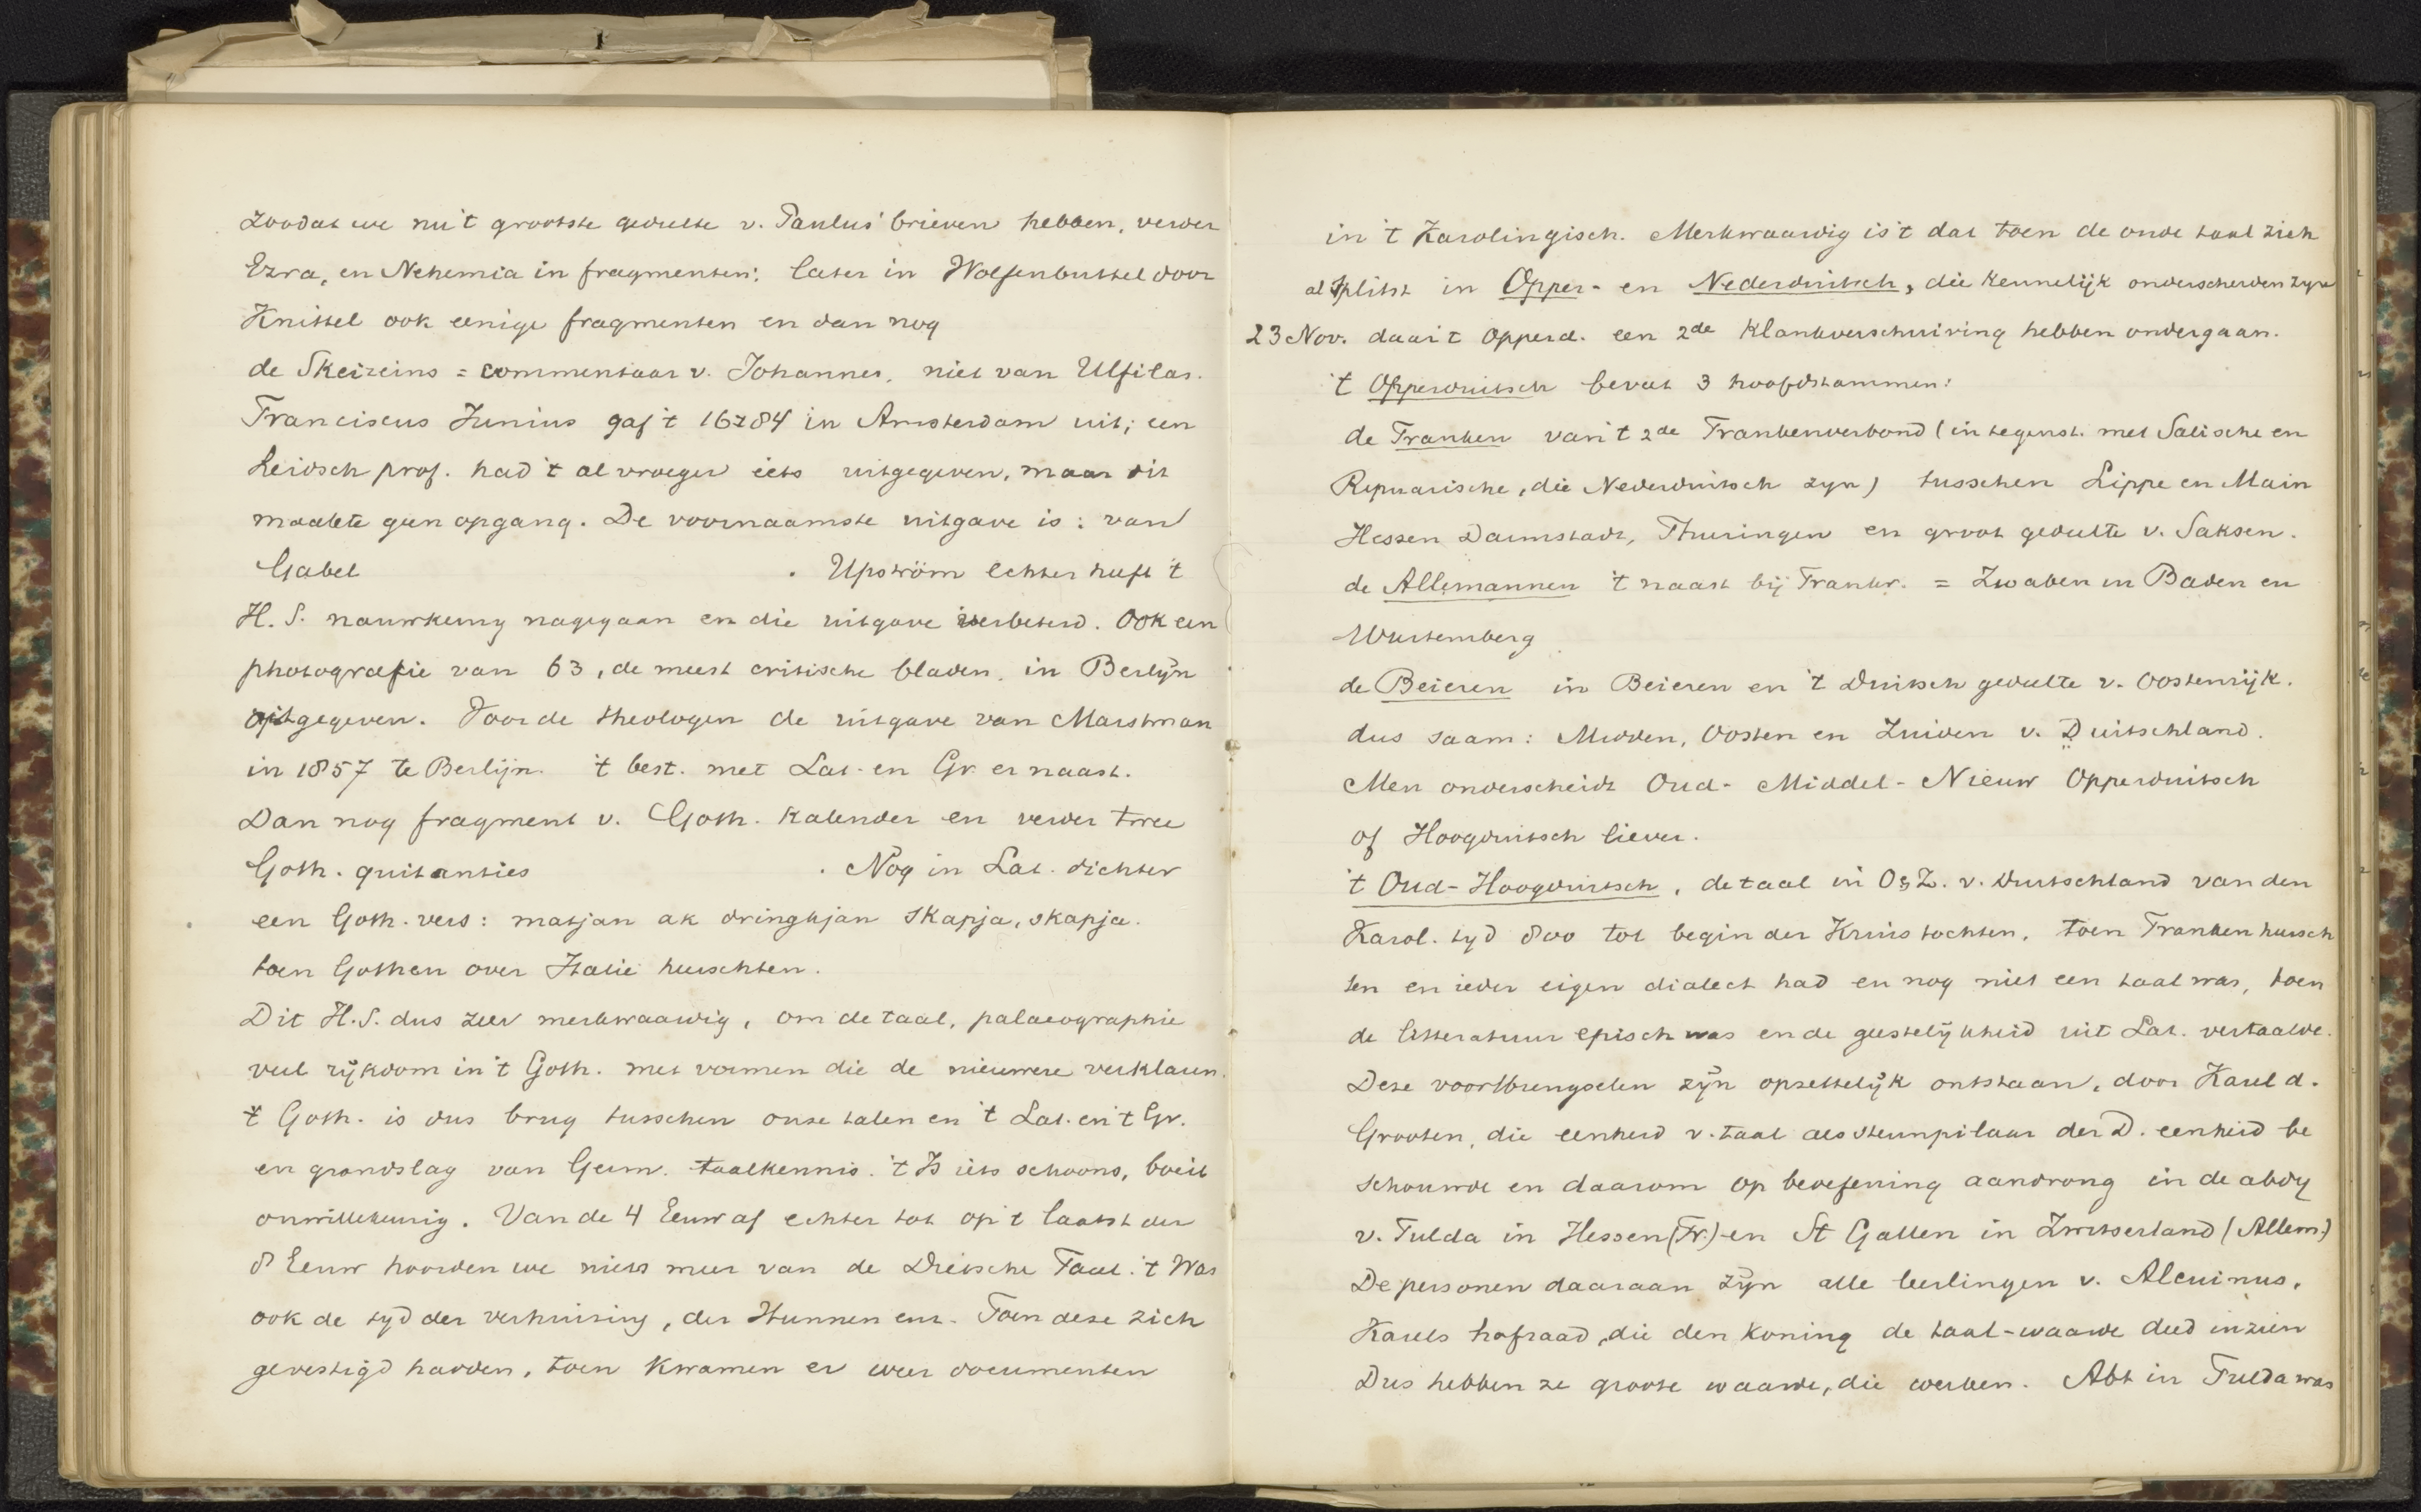 zoodat we nu 't grootste gedeelte v. Paulus' brieven hebben, verder
Ezra, en Nehemia in fragmenten; later in Wolfenbuttel door
Knittel ook eenige fragmenten en dan nog
de Skeireins = commentaar v. Johannes, niet van Ulfilas.
Franciscus Junius gaf 't 1684 in Amsterdam uit; een
Leidsch prof. had 't al vroeger iets uitgegeven, maar dit
maakte geen opgang. De voornaamste uitgave is: van
Gabel . Upström echter heeft 't
H.S. nauwkeurig nagegaan en die uitgave verbeterd. Ook een
photografie van 63, de meest critische bladen, in Berlijn
uitgegeven. Voor de theologen de uitgave van Masstman
in 1857 te Berlijn. 't best. met Lat. en Gr. er naast.
Dan nog fragment v. Goth. Kalender en verder twee
Goth. quitanties . Nog in Lat. dichter
een Goth. vers: matjan ak dringkjan skapja, skapja.
toen Gothen over Italië heerschten.
Dit H.S. dus zeer merkwaardig, om de taal, palaeographie
veel rijkdom in 't Goth. met vormen die de nieuwere verklaren.
't Goth. is dus brug tusschen onze talen en 't Lat. en 't Gr.
en grondslag van Germ. taalkennis. 't Is iets schoons, boeit
onwillekeurig. Van de 4 Eeuw af echter tot op 't laatst der
8 Eeuw hoorden we niets meer van de Dietsche Taal. 't Was
ook de tyd der verhuizing, der Hunnen enz. Toen deze zich
gevestigd hadden, toen kwamen er weer documenten
in 't Karolingisch. Merkwaardig is 't dat toen de oude taal zich
al splitst in Opper- en Nederduitsch, die kennelijk onderscheiden zyn
23 Nov. daar 't Opperd. een 2de Klankverschuiving hebben ondergaan.
't Opperduitsch bevat 3 hoofdstammen:
de Franken van 't 2de Frankenverbond (in tegenst. met Salische en
Ripuarische, die Nederduitsch zyn) tusschen Lippe en Main
Hessen Darmstadt, Thuringen en groot gedeelte v. Saksen.
de Allemannen 't naast bij Frankr. = Zwaben in Baden en
Wurtemberg
de Beieren in Beieren en 't Duitsch gedeelte v. Oostenrijk.
dus saam: Midden, Oosten en Zuiden v. Duitschland.
Men onderscheidt Oud- Middel- Nieuw Opperduitsch
of Hoogduitsch liever.
't Oud-Hoogduitsch, de taal in O & Z. v. Duitschland van den
Karol. tyd 800 tot begin der Kruistochten, toen Franken heersch
ten en ieder eigen dialect had en nog niet een taal was, toen
de litteratuur episch was en de geestelijkheid uit Lat. vertaalde.
Deze voortbrengselen zijn opzettelijk ontstaan, door Karel d.
Grooten, die eenheid v. taal als steunpilaar der D. eenheid be
schouwde en daarom op beoefening aandrong in de abdy
v. Fulda in Hessen (Fr.) en St Gallen in Zwitserland (Allem.)
De personen daaraan zijn alle leerlingen v. Alcuinus,
Karels hofraad, die den koning de taal-waarde deed inzien
Dus hebben ze groote waarde, die werken. Abt in Fulda was